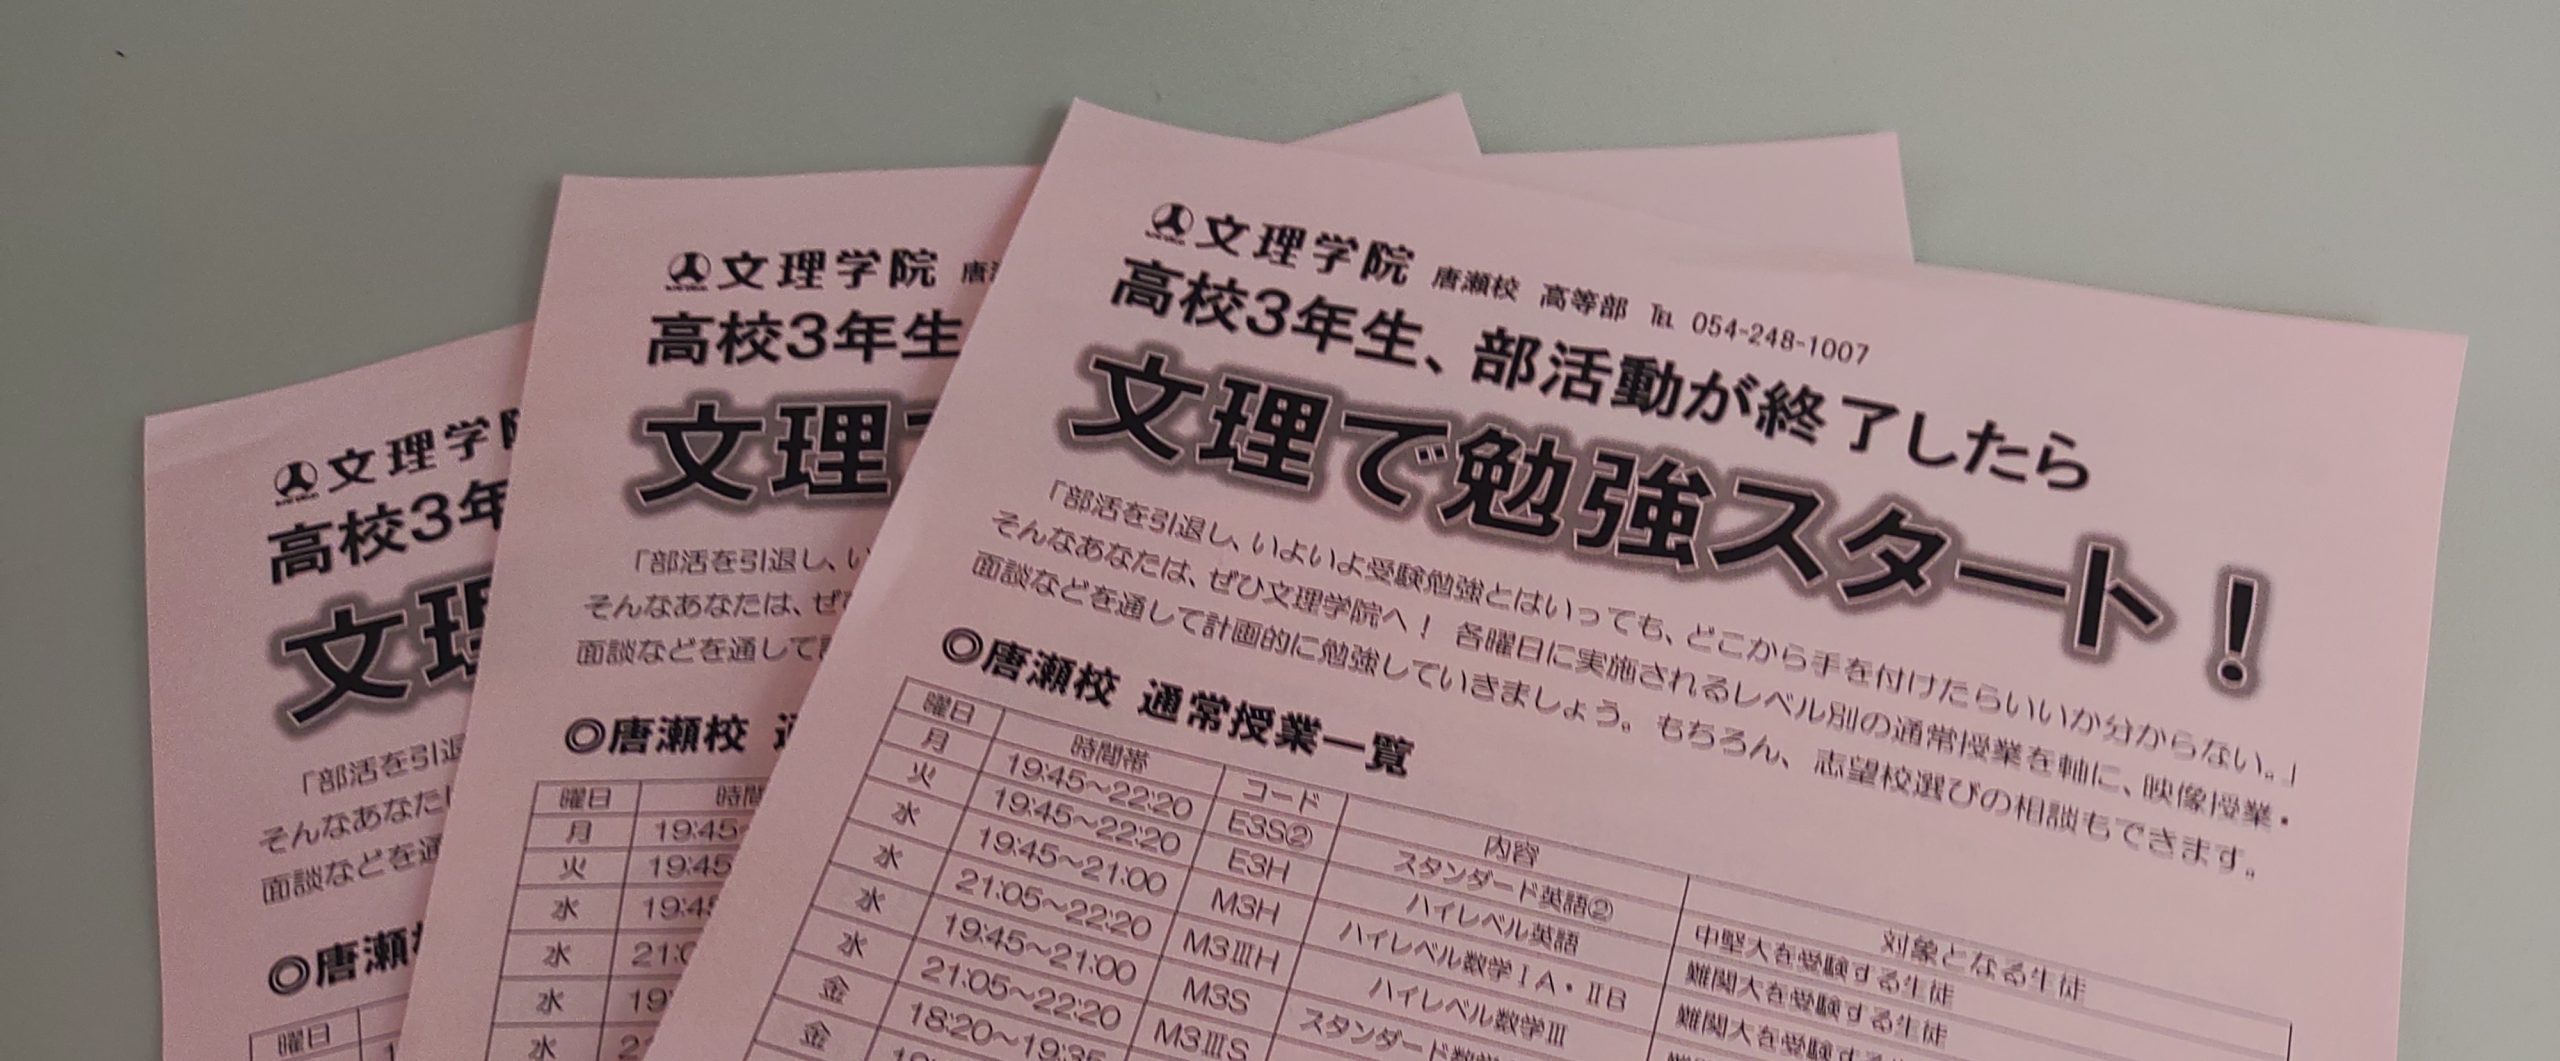 文理学院 唐瀬校 高等部 ℡ 054-248-1007
高校3年生、部活動が終了したら
文理で勉強スタート！
「部活を引退し、いよいよ受験勉強とはいっても、どこから手を付けたらいいか分からない。」
そんなあなたは、ぜひ文理学院へ！ 各曜日に実施されるレベル別の通常授業を軸に、映像授業・
面談などを通して計画的に勉強していきましょう。もちろん、志望校選びの相談もできます。
◎唐瀬校 通常授業一覧
曜日 時間帯 コード 内容 対象となる生徒
月 19:45～22:20 E3S② スタンダード英語② 中堅大を受験する生徒
火 19:45～22:20 E3H ハイレベル英語 難関大を受験する生徒
水 19:45～21:00 M3H ハイレベル数学ⅠA・ⅡB 難関大を受験する生徒
水 21:05～22:20 M3ⅢH ハイレベル数学Ⅲ
水 19:45～21:00 M3S スタンダード数学
水 21:05～22:20 M3ⅢS
金 18:20～19:35
金
文理学院 唐
高校3年生
文理
「部活を引退し、い
そんなあなたは、ぜ
面談などを通して
◎唐瀬校
曜日 時間
月 19:45
火 19:45
水 19:45
水 21:0
水 19
水 2
文理学
高校3年
文理
「部活を引退
そんなあなた
面談などを通
◎唐瀬
曜日